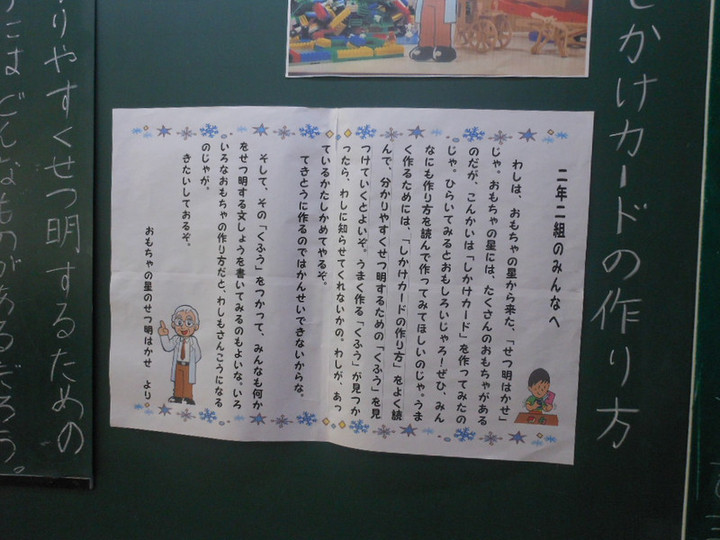 しかけカードの作り方
二年二組のみんなへ
わしは、おもちゃの星から来た、「せつ明はかせ」
じゃ。おもちゃの星には、たくさんのおもちゃがある
のだが、こんかいは「しかけカード」を作ってみたの
じゃ。ひらいてみるとおもしろいじゃろ！ぜひ、みん
なにも作り方を読んで作ってみてほしいのじゃ。うま
く作るためには、「しかけカードの作り方」をよく読
んで、分かりやすくせつ明するための「くふう」を見
つけていくとよいぞ。うまく作る「くふう」が見つか
ったら、わしに知らせてくれないかの。わしが、あっ
ているかたしかめてやるぞ。
てきとうに作るのではかんせいできないからな。
そして、その「くふう」をつかって、みんなも何か
をせつ明する文しょうを書いてみるのもよいな。いろ
いろなおもちゃの作り方だと、わしもさんこうになる
のじゃが。
きたいしておるぞ。
おもちゃの星のせつ明はかせ　より
りやすくせつ明するための
にはどんなものがあるだろう。